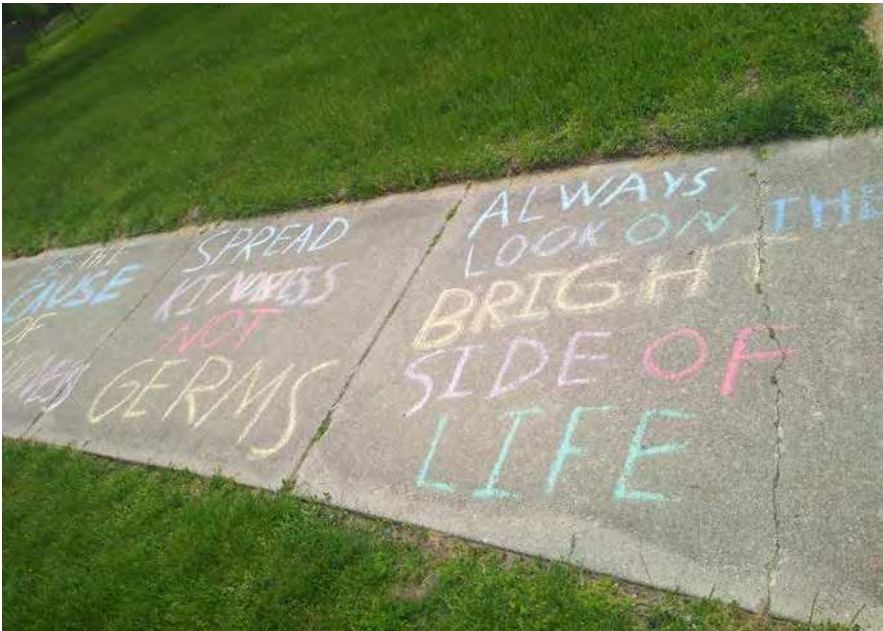 BE THE
CAUSE
OF
SPREAD
KINDNESS
NOT
GERMS
ALWAYS
LOOK ON THE
BRIGHT
SIDE OF
LIFE